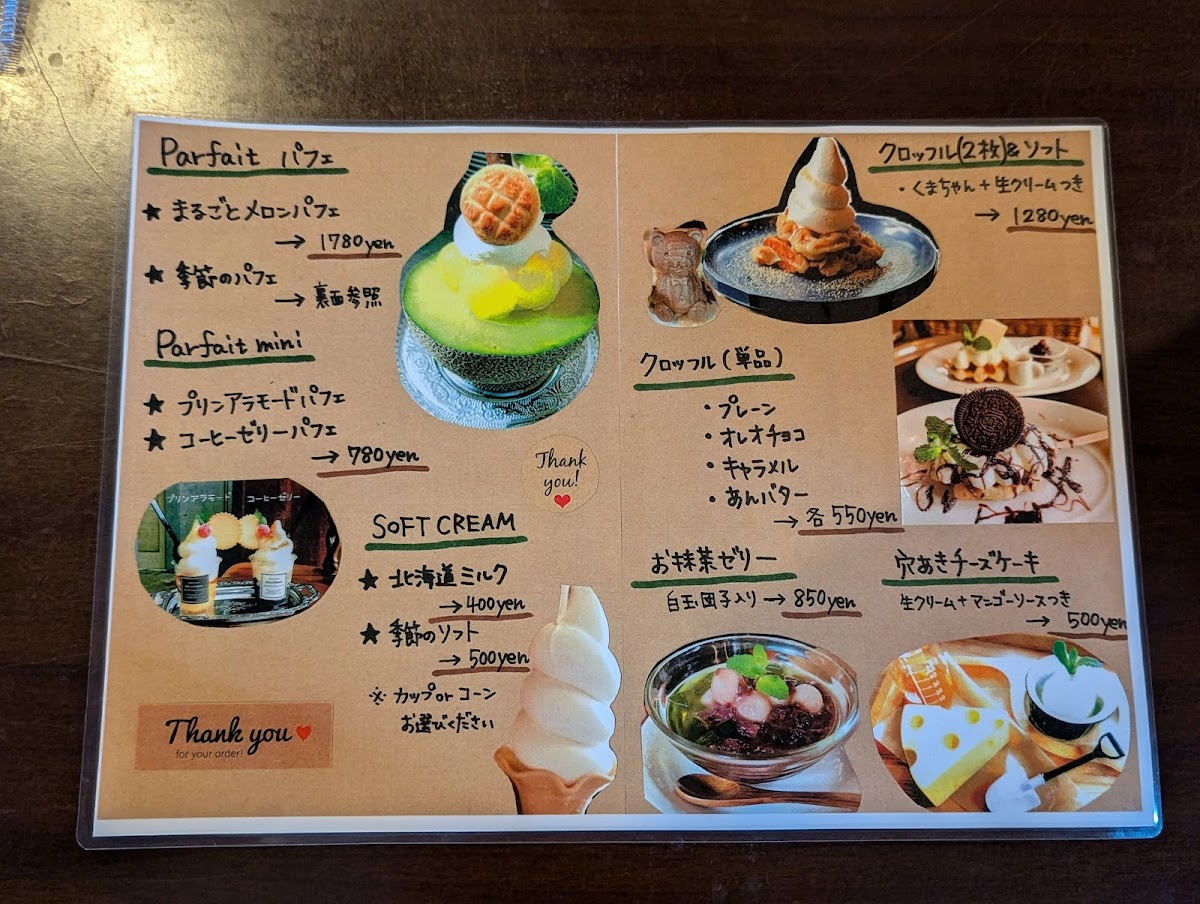 Parfait パフェ
★ まるごとメロンパフェ
→ 1780yen
★ 季節のパフェ
→ 裏面参照
Parfait mini
★ プリンアラモードパフェ
★ コーヒーゼリーパフェ
→ 780yen
プリンアラモード コーヒーゼリー
Thank
you!
SOFT CREAM
★ 北海道ミルク
→ 400yen
★ 季節のソフト
→ 500yen
※ カップ or コーン
お選びください
Thank you
for your order!
クロッフル(2枚)&ソフト
・くまちゃん+生クリームつき
→ 1280yen
クロッフル(単品)
・プレーン
・オレオチョコ
・キャラメル
・あんバター
→ 各550yen
お抹茶ゼリー
白玉団子入り → 850yen
穴あきチーズケーキ
生クリーム+マンゴーソースつき
→ 500yen